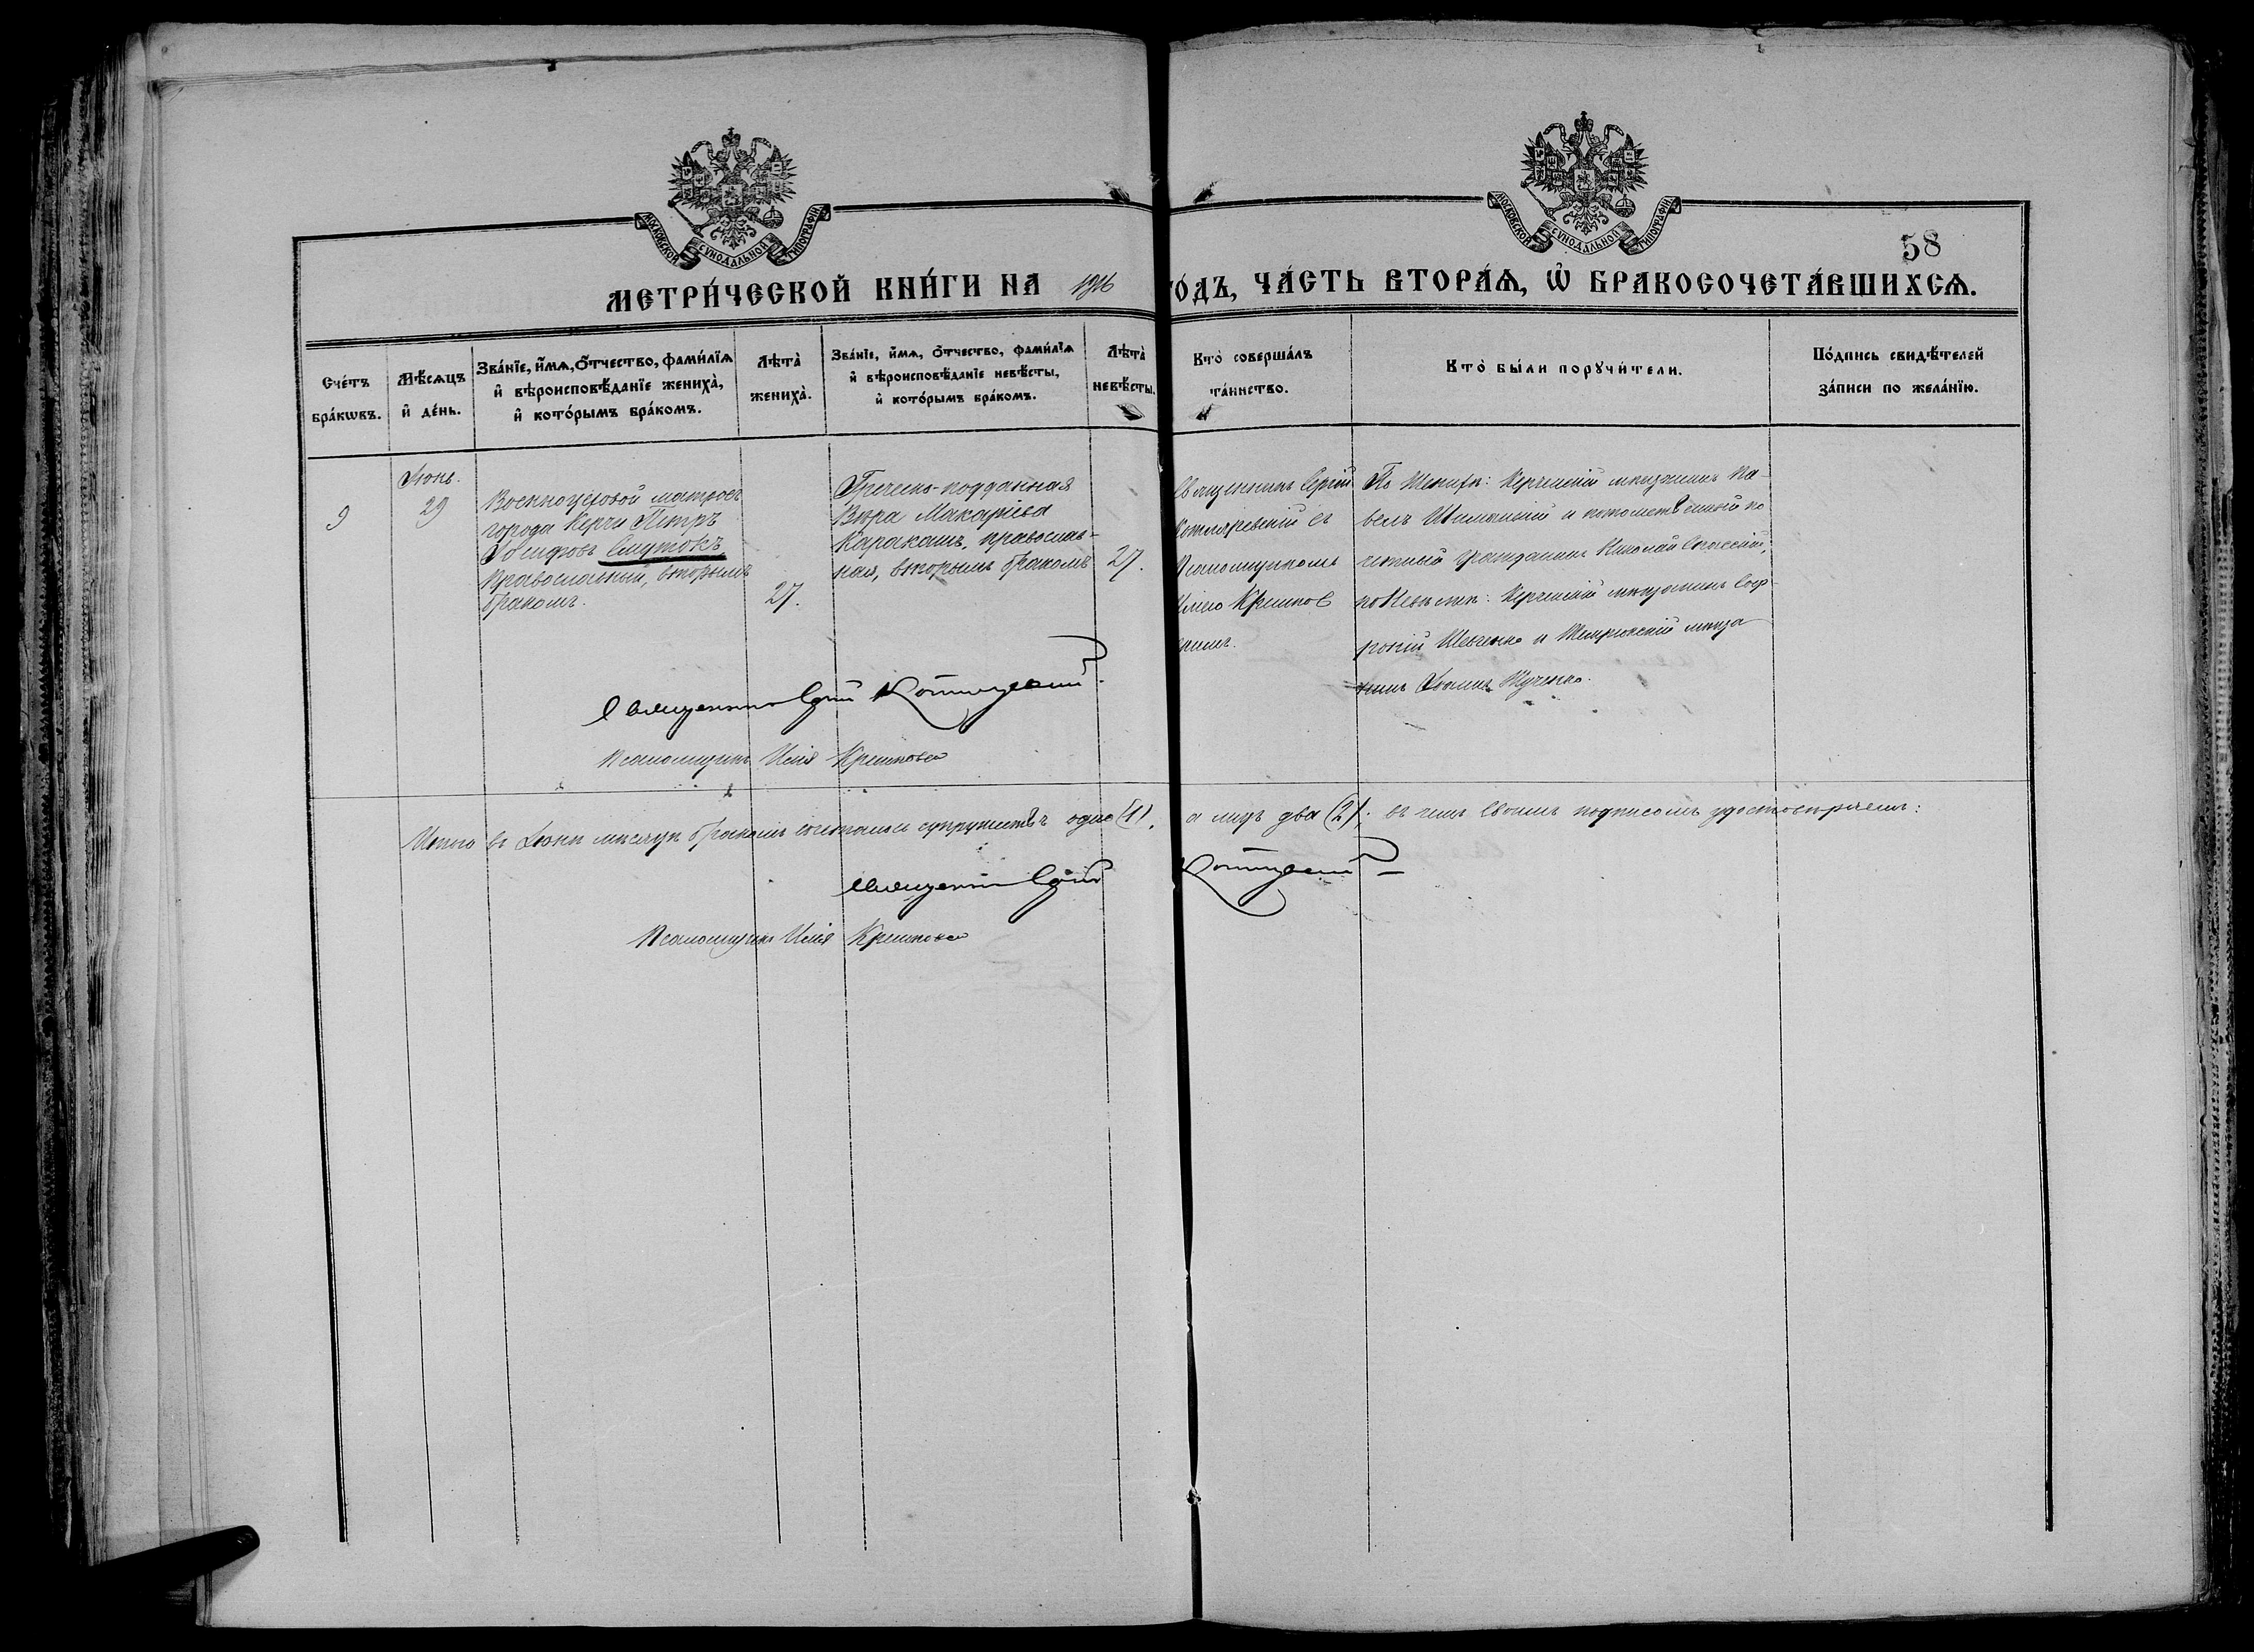 МОСКОВСКОЙ СУНОДАЛЬНОЙ ТИПОГРАФІИ
МОСКОВСКОЙ СУНОДАЛЬНОЙ ТИПОГРАФІИ
58
МЕТРИ́ЧЕСКОЙ КНИ́ГИ НА 1916 ГО́ДЪ, ЧА́СТЬ ВТОРА́Ѧ, Ѡ҆ БРАКОСОЧЕТА́ВШИХСѦ.
Сче́тъ
бра́кѡвъ.
Мѣ́сѧцъ
и҆ де́нь.
Зва́нїе, и҆́мѧ, ѻ҆́тчество, фами́лїѧ
и҆ вѣроисповѣ́данїе жениха̀,
и҆ кото́рымъ бра́комъ.
Лѣта̀
жениха̀.
Зва́нїе, и҆́мѧ, ѻ҆́тчество, фами́лїѧ
и҆ вѣроисповѣ́данїе невѣ́сты,
и҆ кото́рымъ бра́комъ.
Лѣта̀
невѣ́сты.
Кто̀ соверша́лъ
та́инство.
Кто̀ бы́ли порꙋчи́тели.
По́дпись свидѣ́телей
за́писи по жела́нїю.
9
Іюнь.
29
Военноцеховой матросъ
города Керчи Петръ
Іосифовъ Смутокъ,
Православный, вторымъ
бракомъ.
27.
Гречско-подданная
Вѣра Макаріева
Каракашъ, православ-
ная, вторымъ бракомъ
27.
Священникъ Сергій
Котляревскій съ
Псаломщикомъ
Крешков
По Женихѣ: Керченскій мѣщанинъ Па-
велъ и потомственный по
четный Гражданинъ Николай Спасскій,
по Невѣстѣ: Керченскій мѣщанинъ Соф-
роній Шевченко и Темрюкскій мѣща
нинъ Іоаннъ
Священникъ Сергій Котляревскій
Псаломщикъ Илія Крешковъ
Итого въ Іюнѣ мѣсяцѣ бракомъ сочеталось супружествъ одно (1), а лицъ два (2); въ чемъ своимъ подписомъ удостовѣряемъ:
Священникъ Сергій Котляревскій
Псаломщикъ Илія Крешковъ